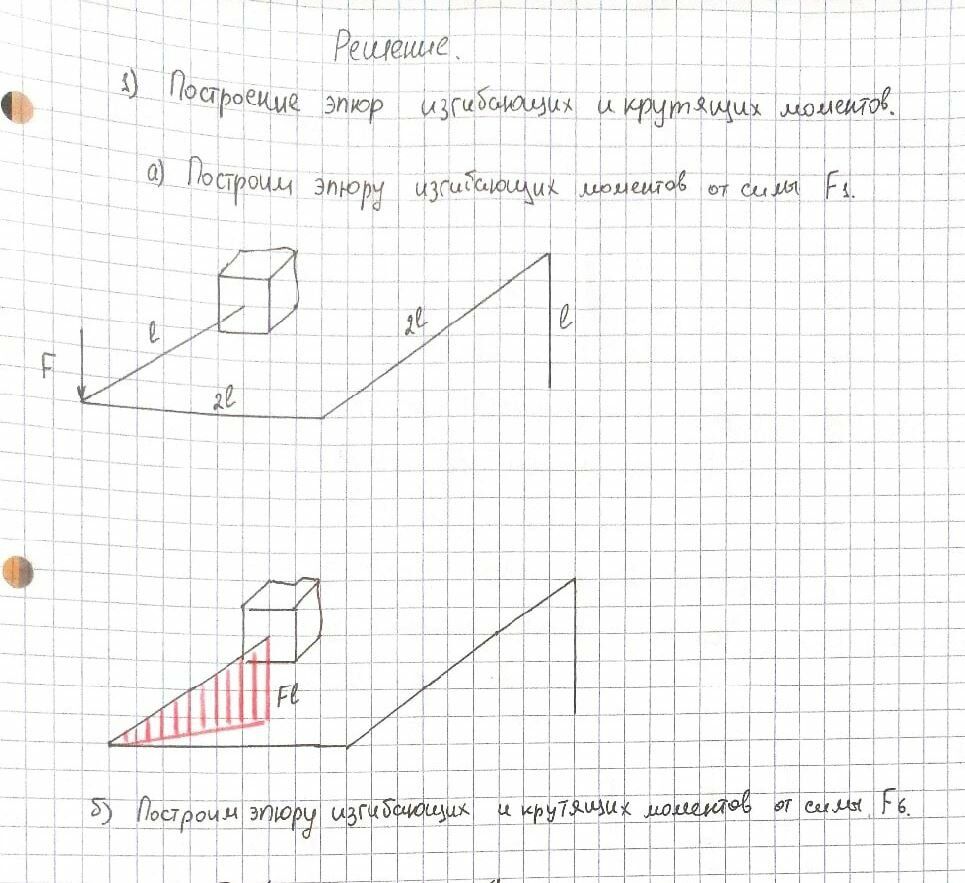 Решение.
1) Построение эпюр изгибающих и крутящих моментов.
а) Построим эпюру изгибающих моментов от силы F1.
l
2l
l
F
2l
Fl
б) Построим эпюру изгибающих и крутящих моментов от силы F6.